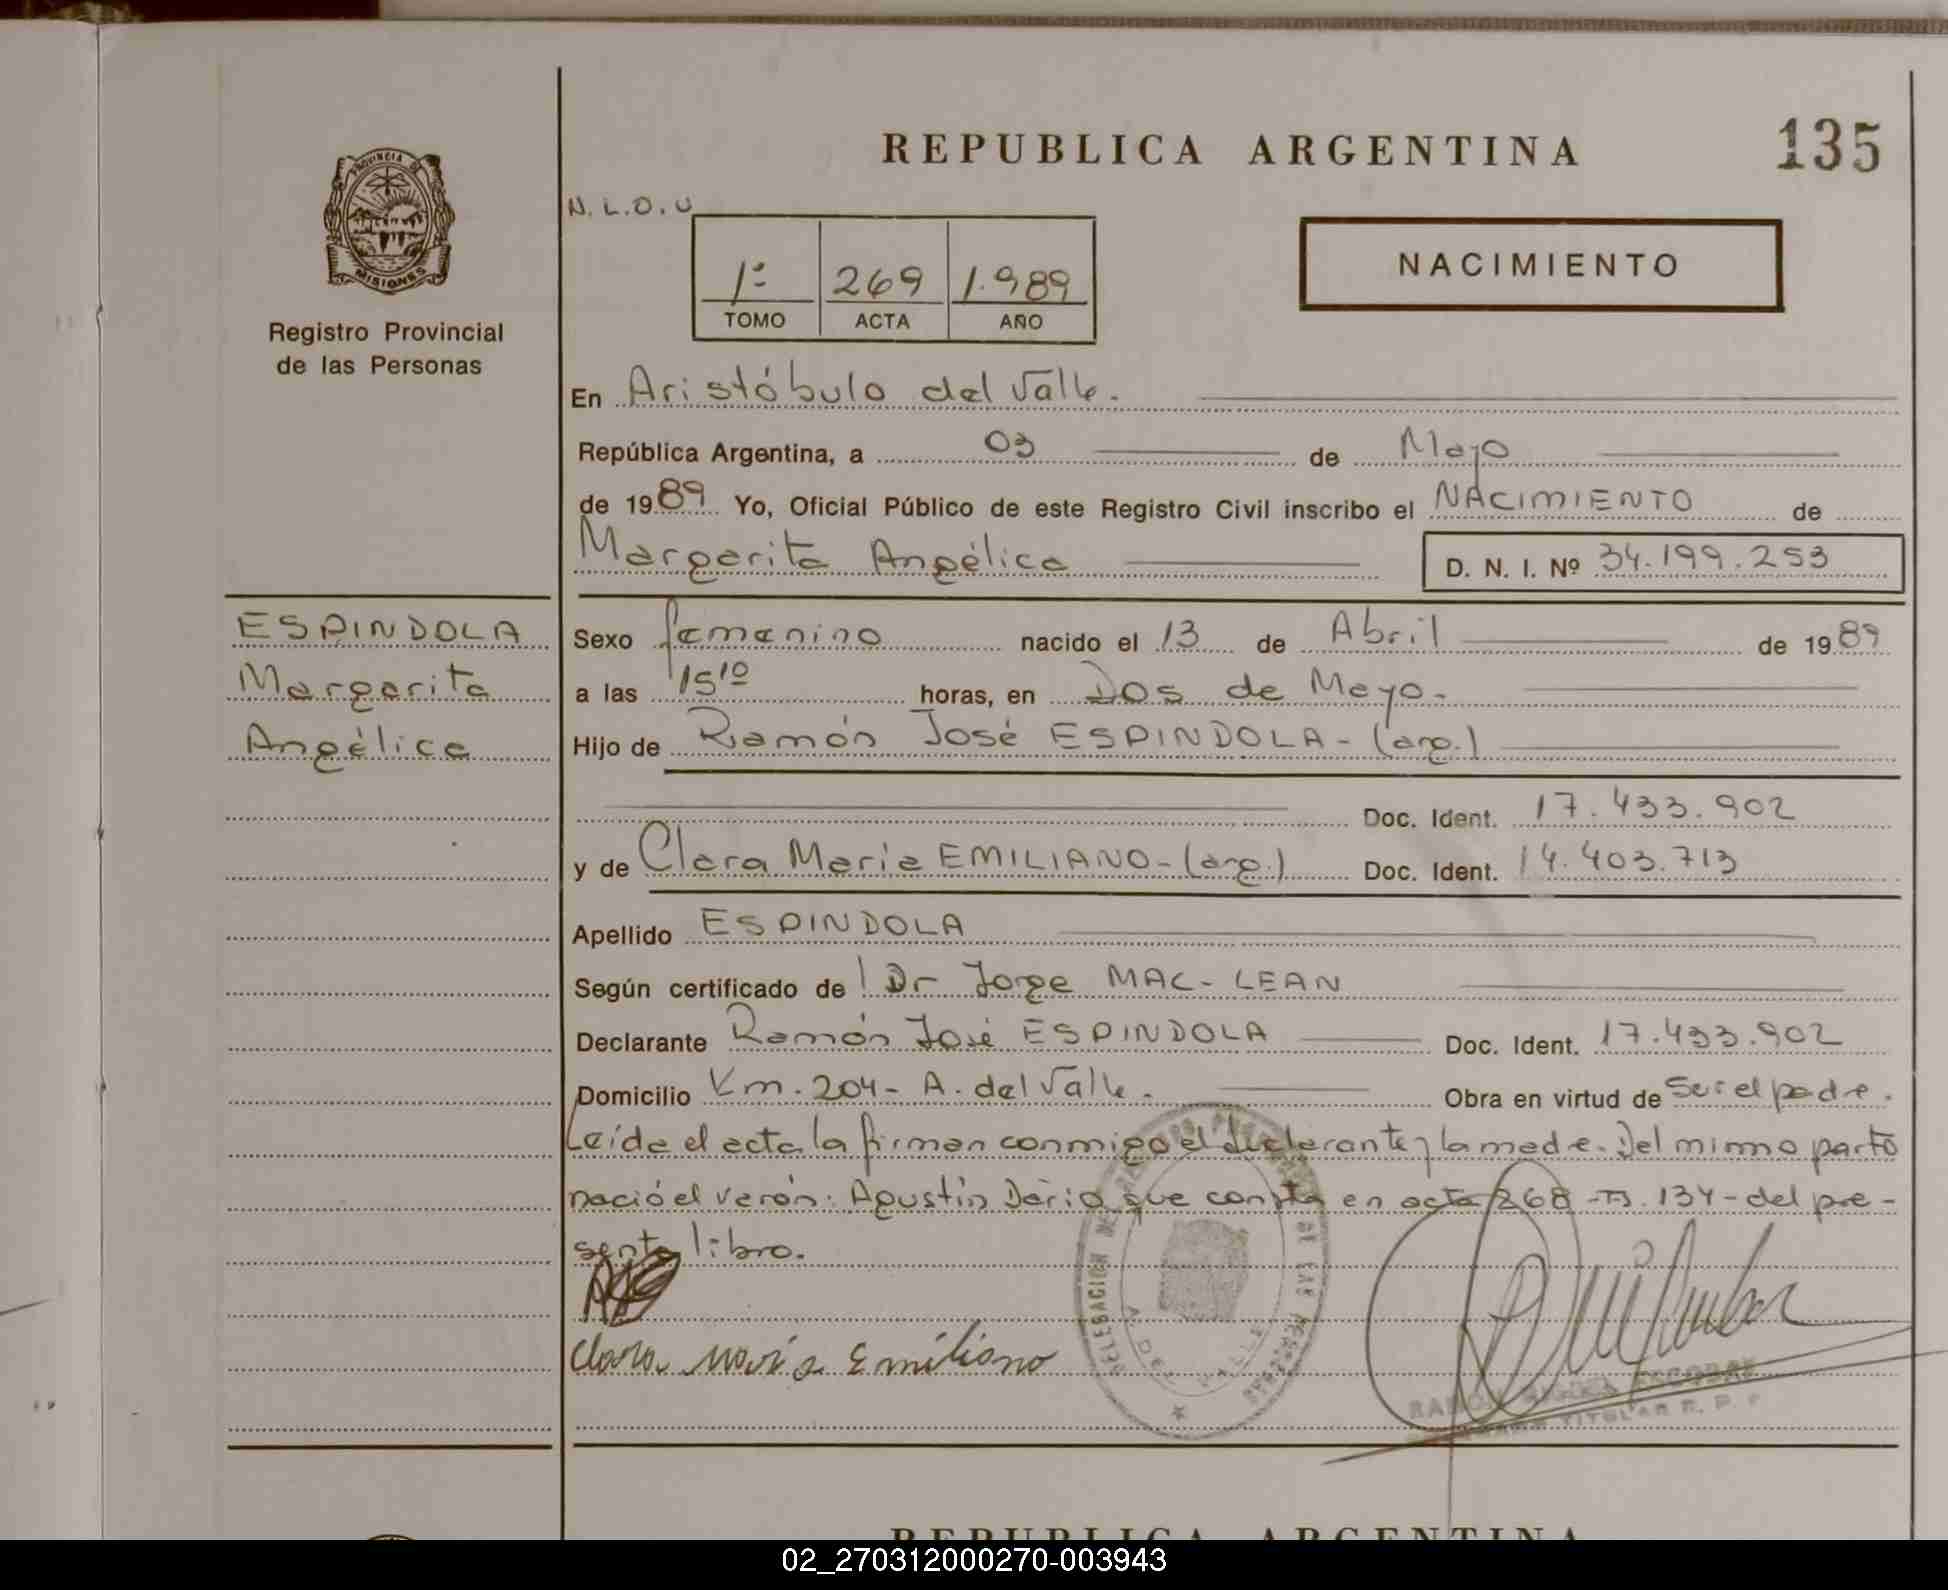 PROVINCIA DE
MISIONES
Registro Provincial
de las Personas
ESPINDOLA
Margarita
Angélica
REPUBLICA ARGENTINA
135
N. L. O. U
1º 269 1.989
TOMO ACTA AÑO
NACIMIENTO
En Aristóbulo del Valle.
República Argentina, a 03 de Mayo
de 1989 Yo, Oficial Público de este Registro Civil inscribo el NACIMIENTO de
Margarita Angélica D. N. I. Nº 34.199.253
Sexo femenino nacido el 13 de Abril de 1989
a las 15¹⁰ horas, en Dos de Mayo.
Hijo de Ramón José ESPINDOLA - (arg.)
Doc. Ident. 17.433.902
y de Clara María EMILIANO - (arg.) Doc. Ident. 14.403.713
Apellido ESPINDOLA
Según certificado de Dr Jorge MAC-LEAN
Declarante Ramón José ESPINDOLA Doc. Ident. 17.433.902
Domicilio Km. 204 - A. del Valle. Obra en virtud de ser el padre.
Leída el acta la firman conmigo el declarante y la madre. Del mismo parto
nació el varón: Agustín Darío que consta en acta 268 - 134 - del pre-
sente libro.
Clara María Emiliano
DELEGACION DE LAS
A. DEL VALLE
RAMON MIGUEL ESCOBAR
TITULAR R. P. P
REPUBLICA ARGENTINA
02_270312000270-003943